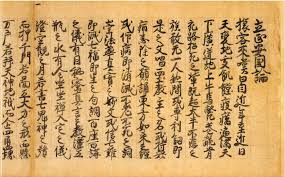 立正安國論
旅客來嘆曰自近年至近日
天變地夭飢饉疫癘遍滿天
下廣迸地上牛馬斃巷骸骨
充路招死之輩既超大半不悲之
族敢無一人然間或專利劍即
是之文唱西土教主之名或恃衆
病悉除之願誦東方如來之經
或仰病即消滅不老不死之詞
崇法華真實之妙文或信七難
即滅七福即生之句調百座百講
之儀有因秘密真言之教灑五
瓶之水有全坐禪入定之儀
澄空觀之月若書七鬼神之號
而押千門若圖五大力之形而懸
万戸若拜天神地祇而企四角四堺